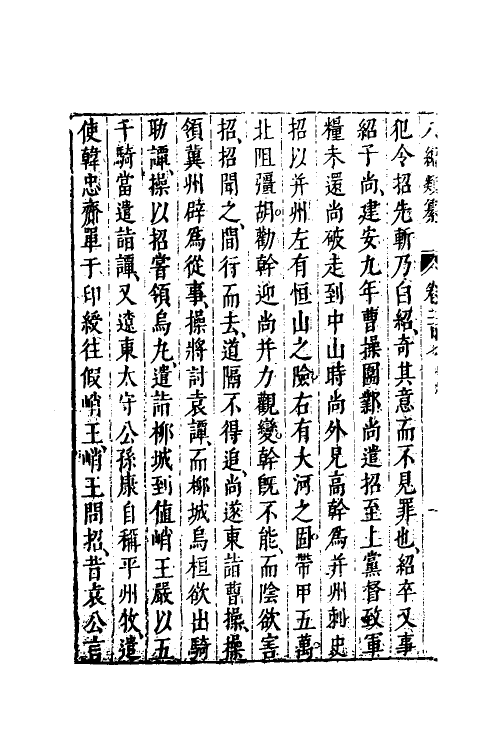 八編類纂　卷二百
犯令招先斬乃白紹奇其意而不見罪也紹卒又事
紹子尚建安九年曹操圍鄴尚遣招至上黨督致軍
糧未還尚破走到中山時尚外兄高幹爲并州刺史
招以并州左有恒山之險右有大河之固帶甲五萬
北阻彊胡勸幹迎尚并力觀變幹旣不能而陰欲害
招招聞之間行而去道隔不得追尚遂東詣曹操操
領冀州辟爲從事操將討袁譚而柳城烏桓欲出騎
助譚操以招嘗領烏丸遣詣柳城到値峭王嚴以五
千騎當遣詣譚又遼東太守公孫康自稱平州牧遣
使韓忠齎單于印綬往假峭王峭王問招昔袁公言